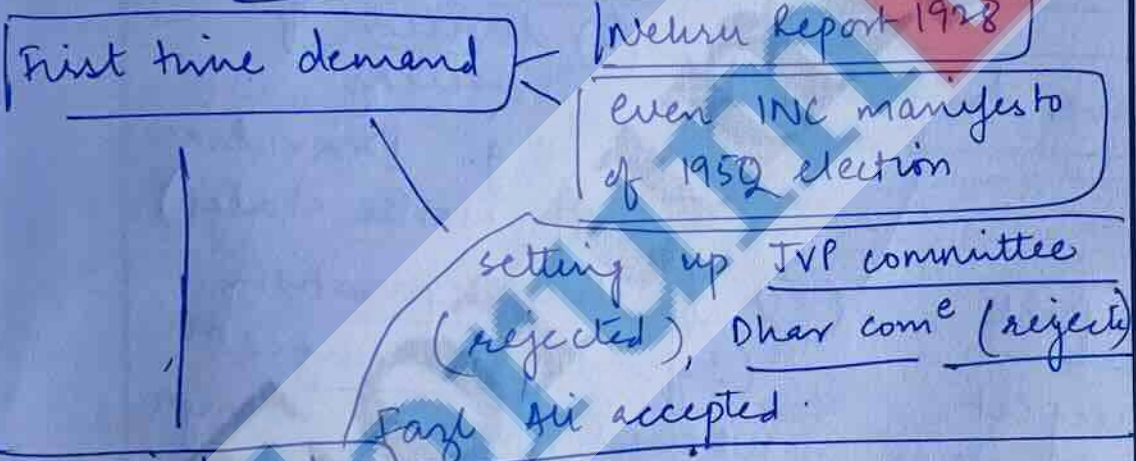 First time demand
Nehru Report 1928
even INC manifesto
of 1952 election
setting up JVP committee
(rejected), Dhar com^e (rejecte
Fazl Ali accepted.